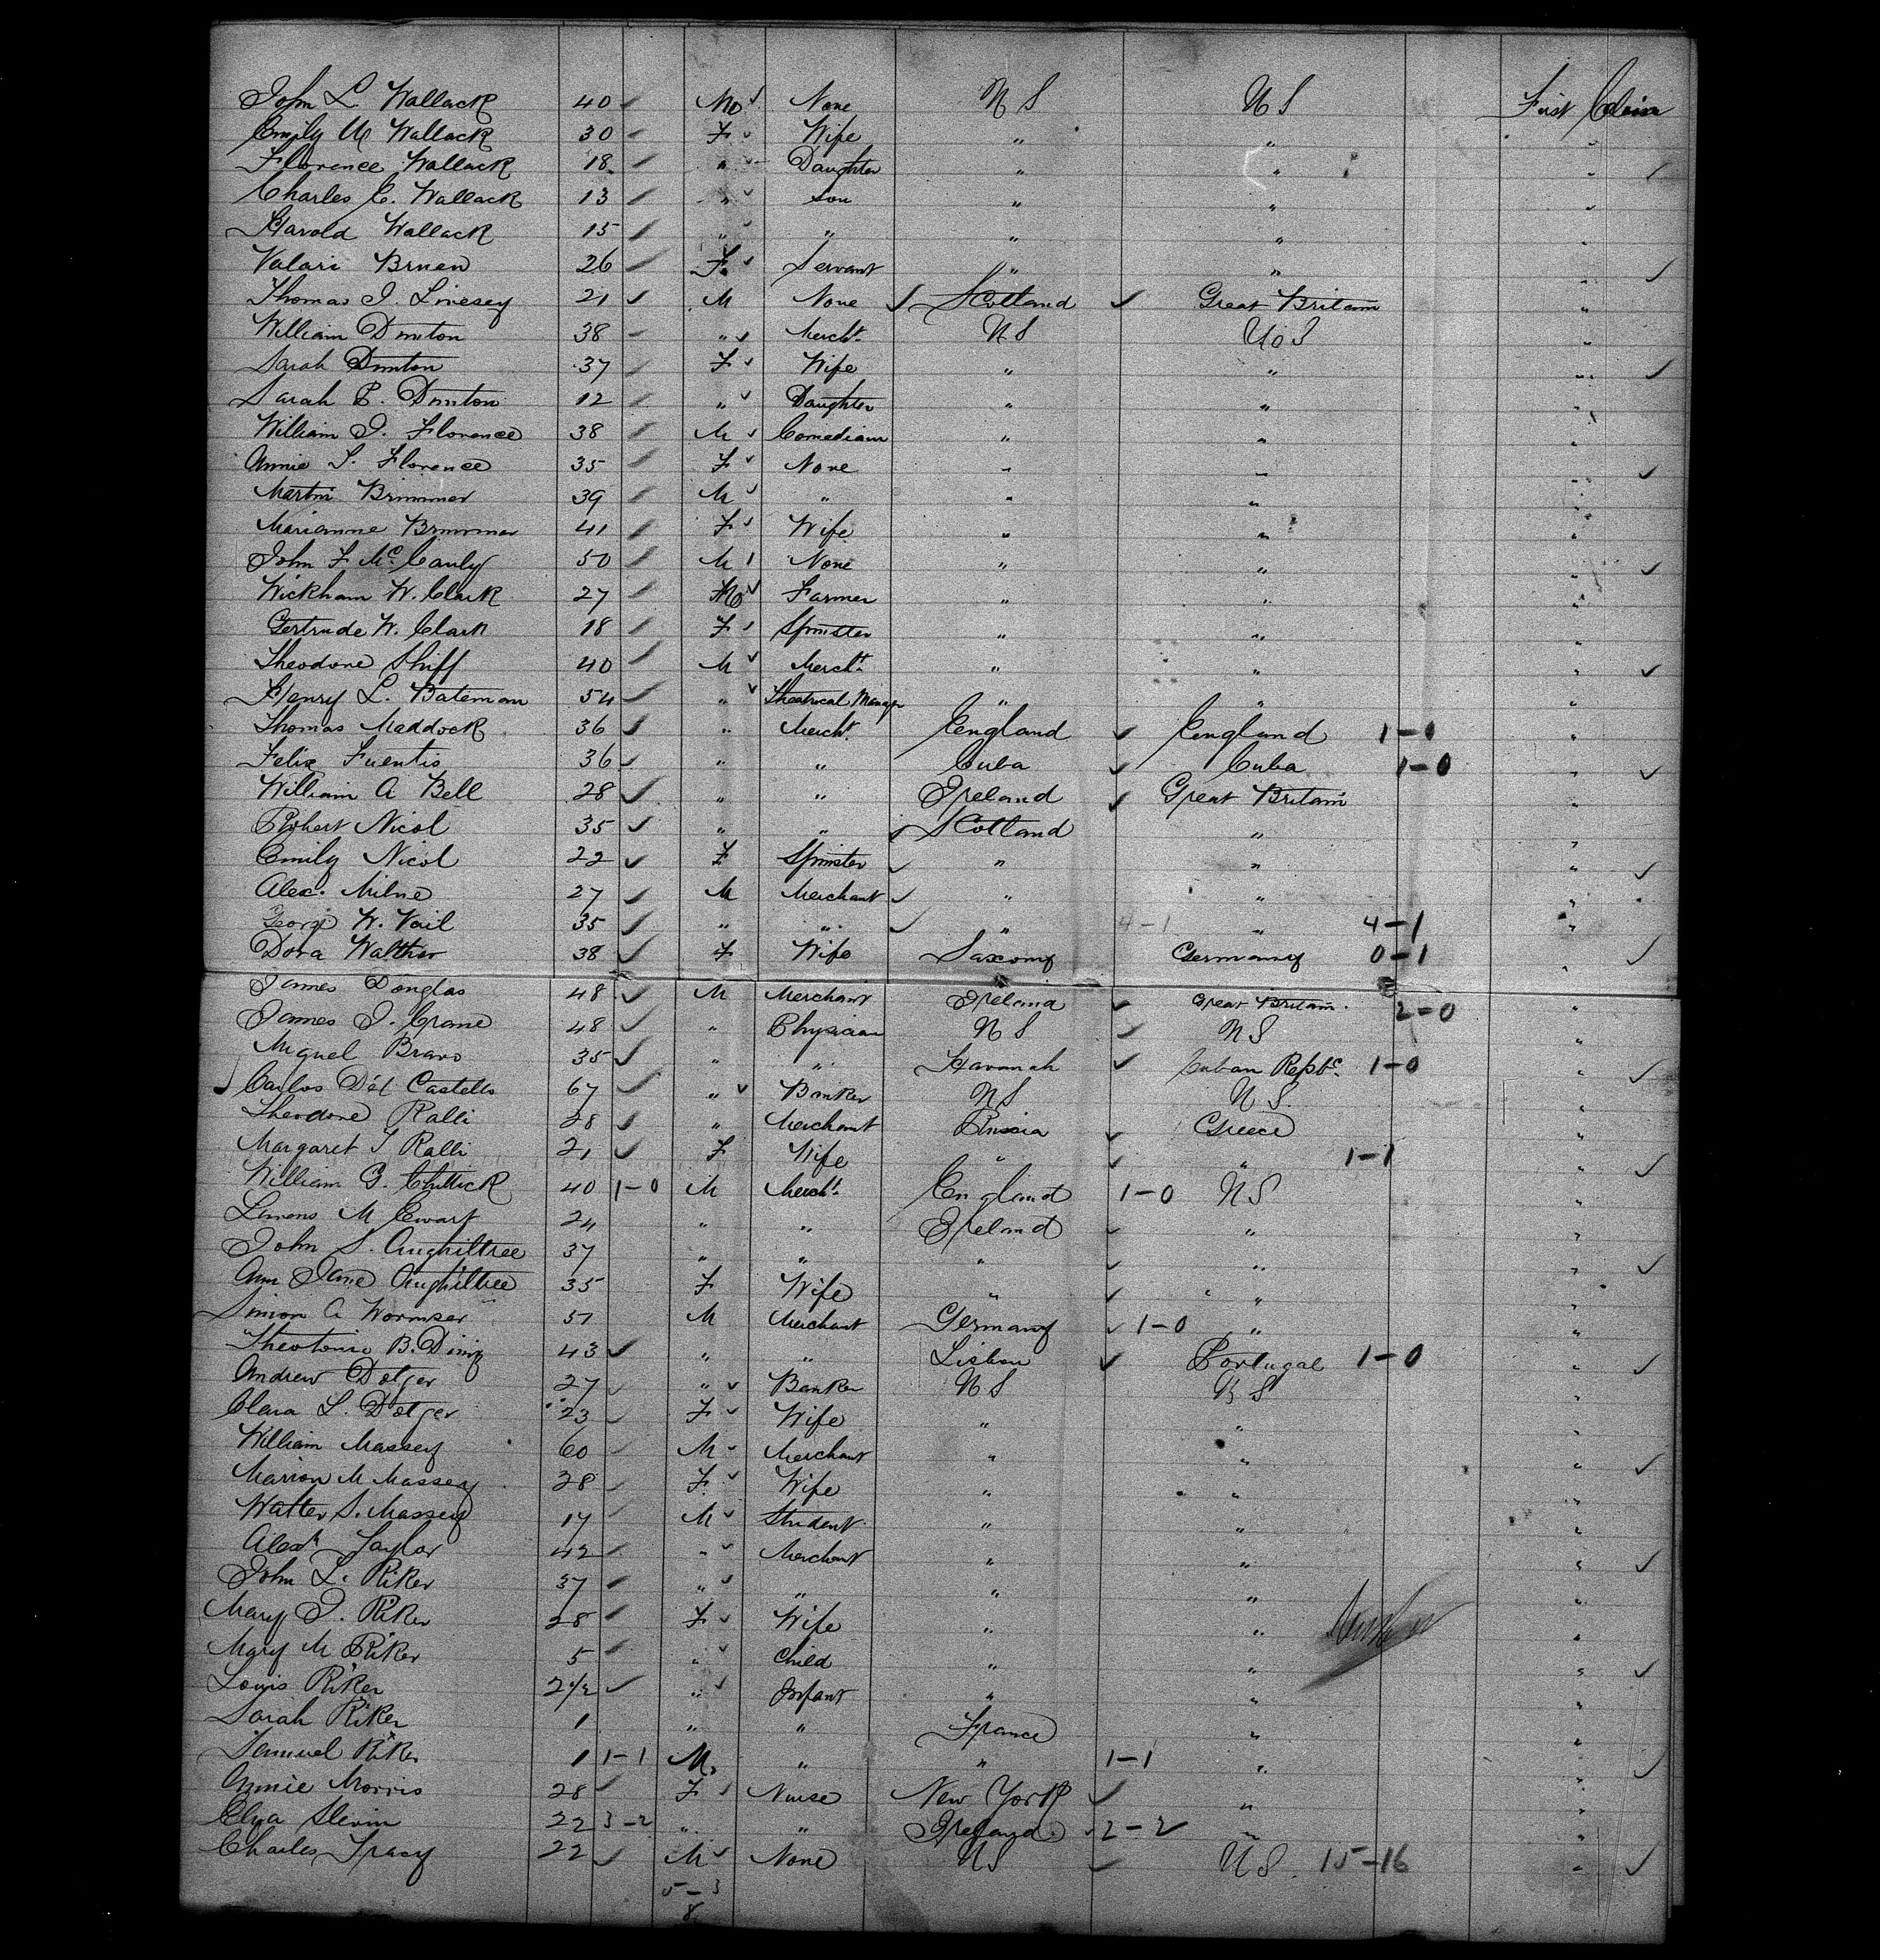 John L. Wallack 40 M None U S U S First Cabin
Emily M Wallack 30 F Wife " " "
Florence Wallack 18 " Daughter " " "
Charles E. Wallack 13 " son " " "
Harold Wallack 15 " " " " "
Valari Bruen 26 F. Servant " " "
Thomas J. Livesey 21 M None Scotland Great Britain "
William Dinton 38 " Mercht. U S U S "
Sarah Dinton 37 F Wife " " "
Sarah E. Dinton 12 " Daughter " " "
William J. Florence 38 M Comedian " " "
Annie T. Florence 35 F None " " "
Martin Brimmer 39 M " " " "
Marianne Brimmer 41 F Wife " " "
John F McCauly 50 M None " " "
Wickham W. Clark 27 M Farmer " " "
Gertrude W. Clark 18 F Spinster " " "
Theodore Shiff 40 M Mercht. " " "
Henry L. Bateman 54 " Theatrical Manager " " "
Thomas Maddock 36 " Mercht. England England 1-0 "
Felix Fuentis 36 " " Cuba Cuba 1-0 "
William A Bell 28 " " Ireland Great Britain "
Robert Nicol 35 " " Scotland " "
Emily Nicol 22 F Spinster " " "
Alex. Milne 27 M Merchant " " "
George W. Vail 35 " " " 4-1 " 4-1 "
Dora Walther 38 F Wife Saxony Germany 0-1 "
James Douglas 48 M Merchant Ireland Great Britain. 2-0 "
James J. Crane 48 " Physician U S U S "
Miguel Bravo 35 " " Havanah Cuban Repbc. 1-0 "
Carlos Del Castello 67 " Banker U S U S. "
Theodore Ralli 28 " Merchant Russia Greece "
Margaret T Ralli 21 F Wife " " 1-1 "
William G. Chittick 40 1-0 M Mercht. England 1-0 U S "
Lavens M Ewart 24 " " Ireland " "
John S. Aughiltree 37 " " " " "
Ann Jane Aughiltree 35 F Wife " " "
Simon A Wormser 51 M Merchant Germany 1-0 " "
Theotonio B. Diniz 43 " " Lisbon Portugal 1-0 "
Andrew Dotger 27 " Banker U S U S "
Clara L. Dotger 23 F Wife " " "
William Massey 60 M Merchant " " "
Marion M Massey 28 F. Wife " " "
Walter S. Massey 17 M Student " " "
Alexr Taylor 42 " Merchant " " "
John L. Riker 37 " " " " "
Mary J. Riker 28 F Wife " " "
Mary M Riker 5 " Child " " "
Louis Riker 2 1/2 " Infant " " "
Sarah Riker 1 " " France " "
Samuel Riker 1 1-1 M. " " 1-1 " "
Annie Morris 28 F Nurse New York " "
Eliza Slevin 22 3-2 " " Ireland 2-2 " "
Charles Tracy 22 M None U S U S. 15-16 "
5-3
8